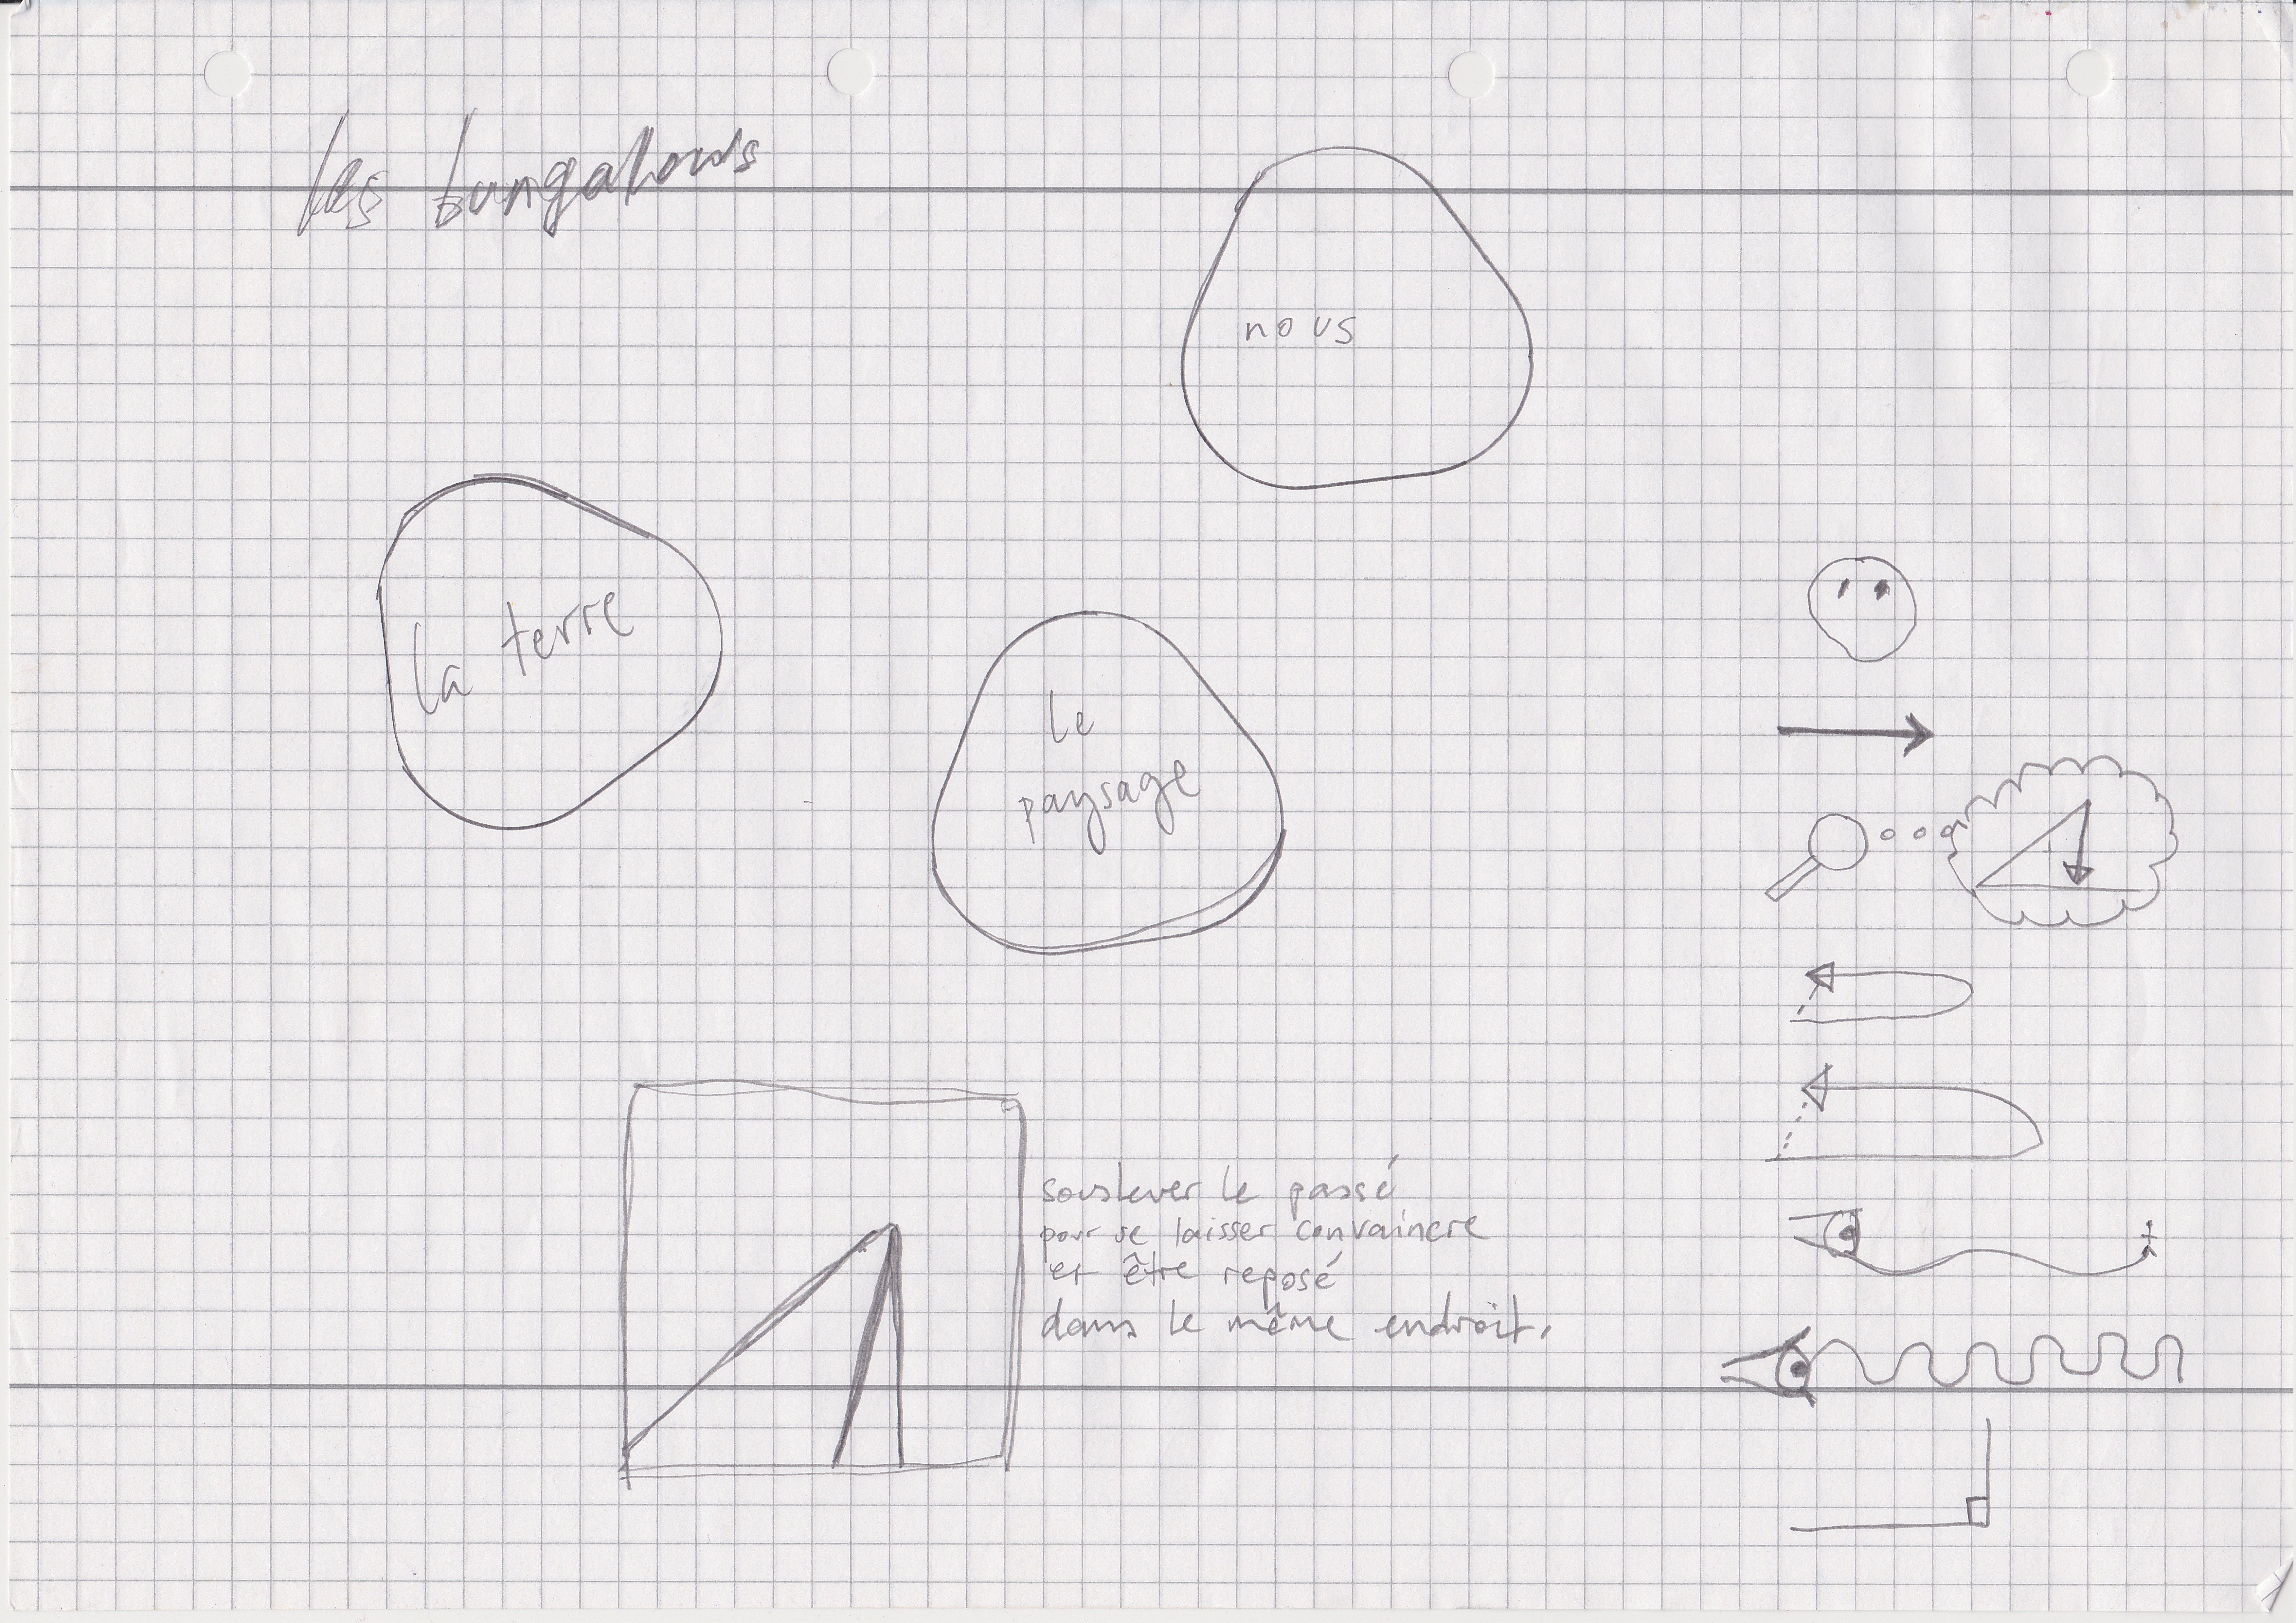 les bungalows
nous
la terre
le
paysage
souslever le passé
pour se laisser convaincre
et être reposé
dans le même endroit.